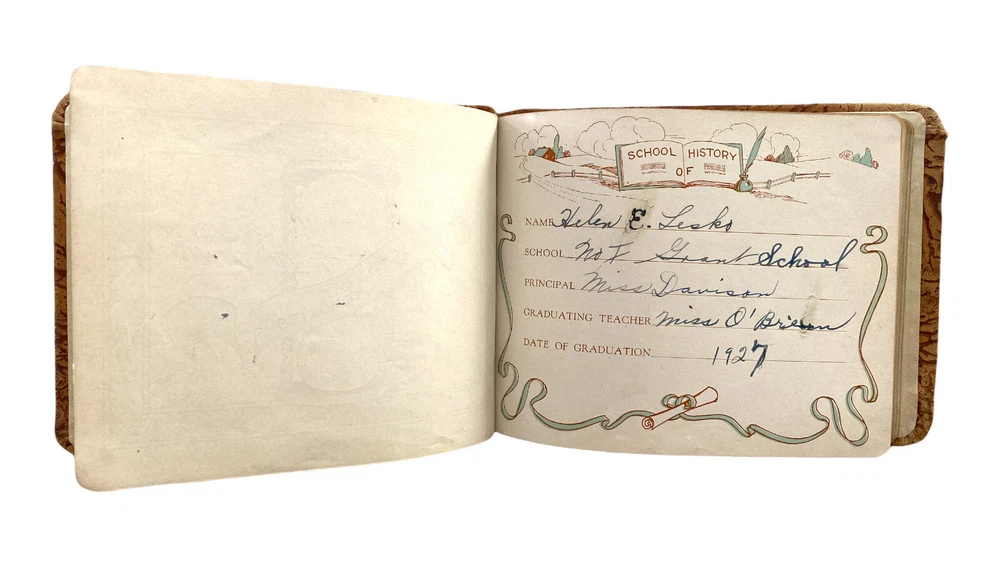 SCHOOL HISTORY
OF
NAME Helen E. Lesko
SCHOOL No 7 Grant School
PRINCIPAL Miss Davison
GRADUATING TEACHER Miss O'Brien
DATE OF GRADUATION 1927